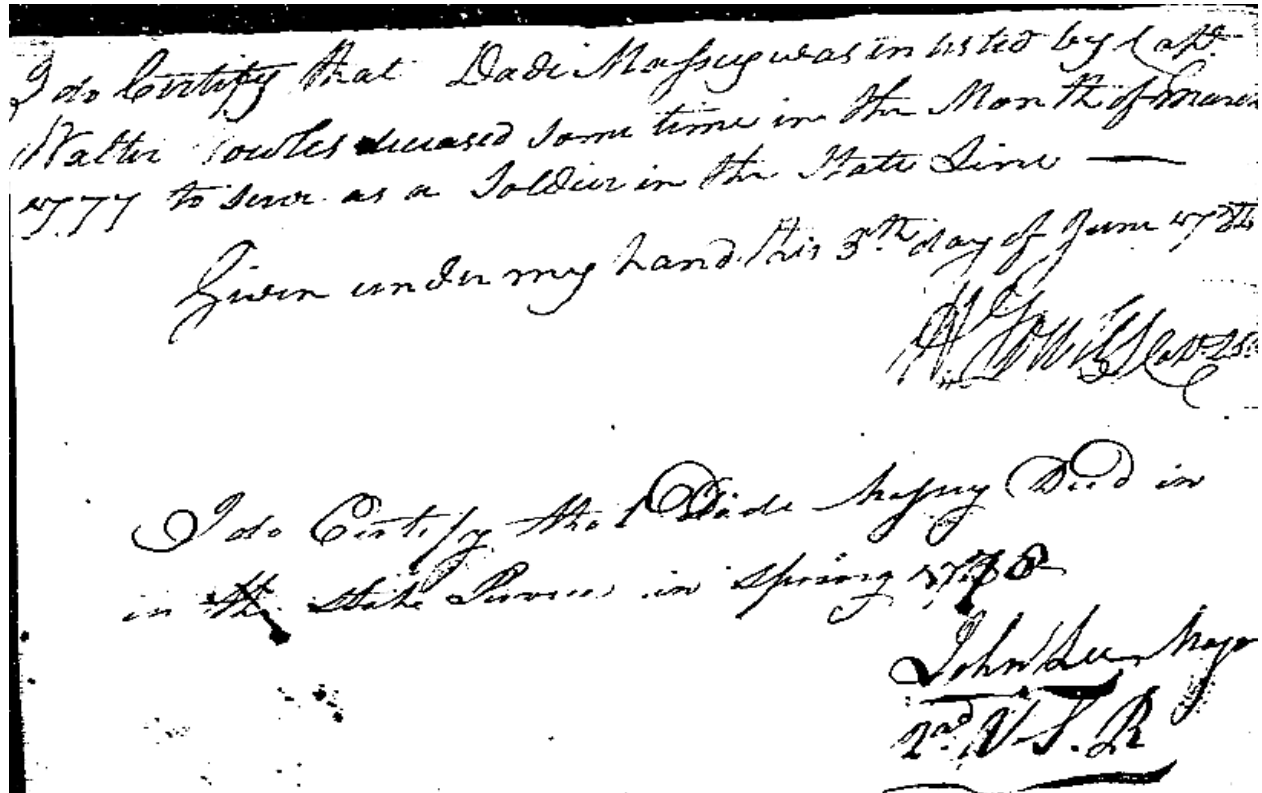 I do Certify that Dade Massey was inlisted by Capt
Walter Vowles deceased some time in the Month of March
1777 to serve as a Soldier in the State Line —
Given under my hand this 3th day of June 1784
H Vowles Capt
I do Certify that Dade Massey Died in
in the State Service in spring 1778
John Lee Major
2nd V. S. R